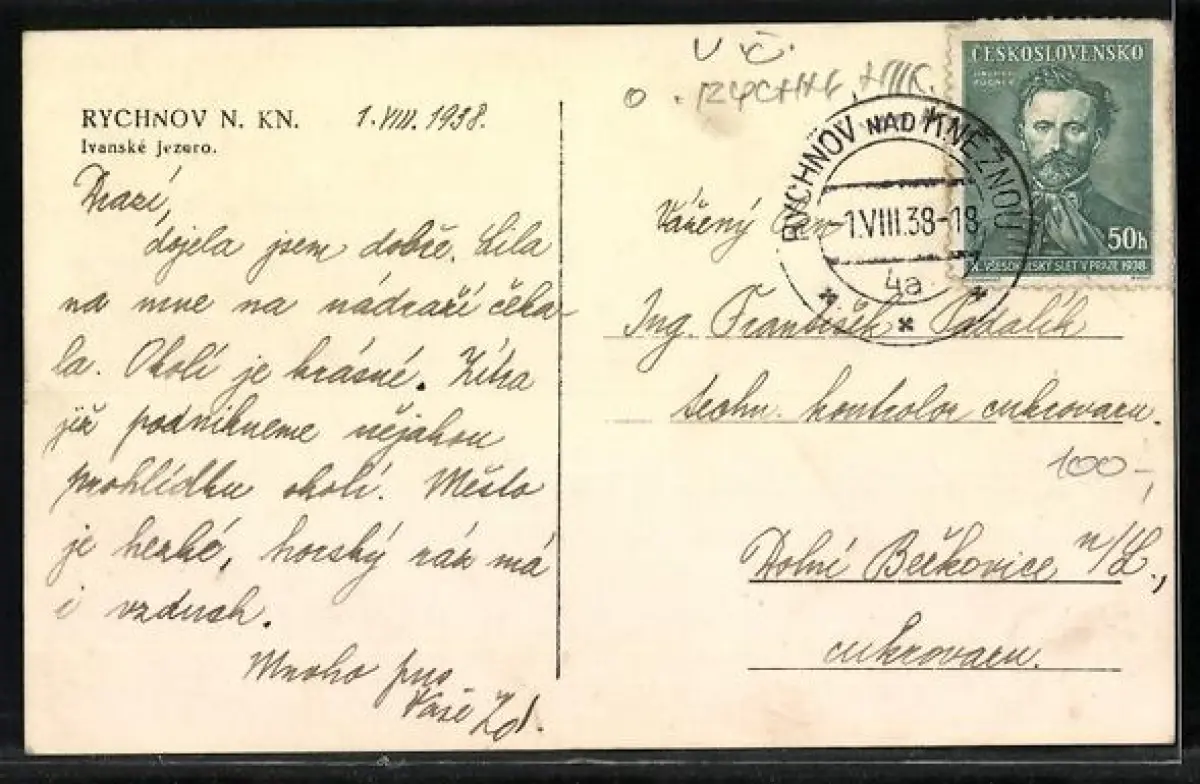 RYCHNOV N. KN. 1. VIII. 1938.
Ivanské jezero.
Drazí,
dojela jsem dobře. Lila
na mne na nádraží čeka-
la. Okolí je krásné. Zítra
již podnikneme nějakou
prohlídku okolí. Město
je hezké, horský ráz má
i vzduch.
Mnoho pus
Vaše Zd.
V Č.
O. RYCHN.
ČESKOSLOVENSKO
JINDŘICH
FÜGNER
50h
X. VŠESOKOLSKÝ SLET V PRAZE 1938
RYCHNOV NAD KNĚŽNOU
-1.VIII.38-18
4a
Vážený pan
Ing. František
techn. kontrolor cukrovaru.
100-,
Dolní Beřkovice n/L.,
cukrovaru.